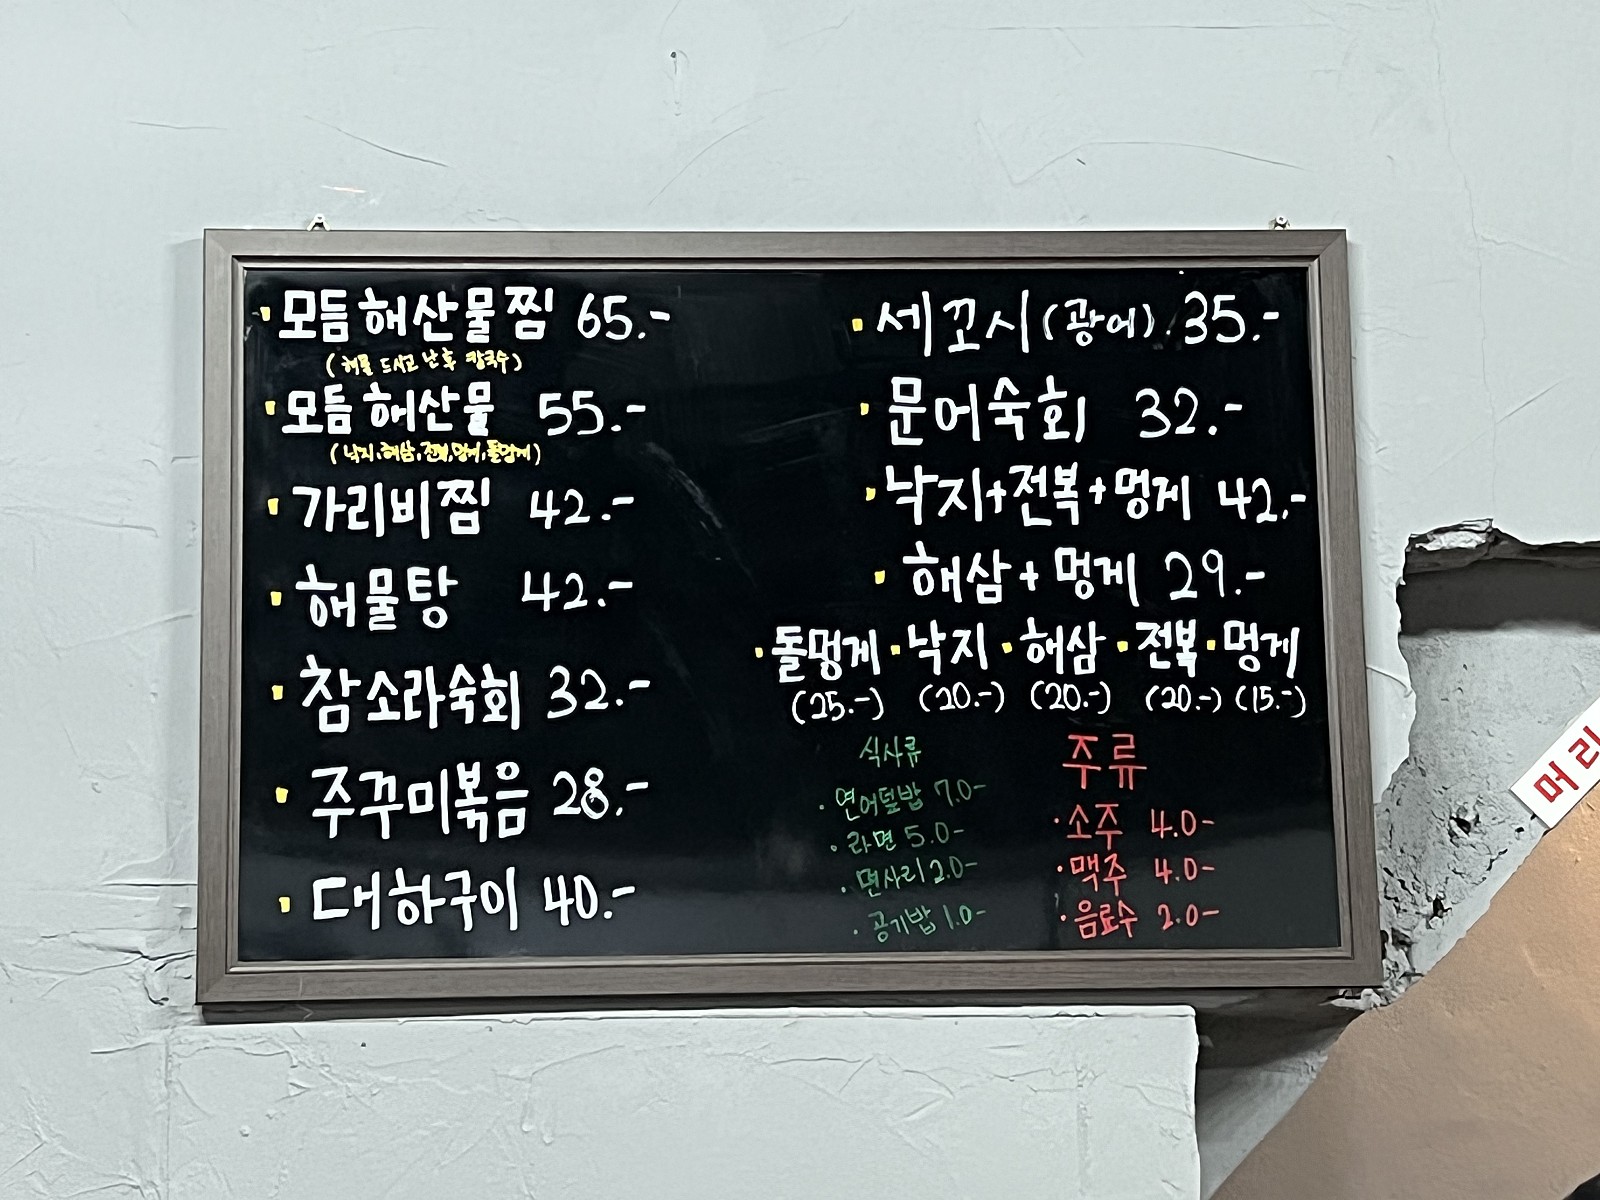 모듬해산물찜 65.-
(해물 드시고 난 후 칼국수)
모듬해산물 55.-
(낙지,해삼,전복,멍게,돌멍게)
가리비찜 42.-
해물탕 42.-
참소라숙회 32.-
주꾸미볶음 28.-
대하구이 40.-
세꼬시(광어). 35.-
문어숙회 32.-
낙지+전복+멍게 42.-
해삼+멍게 29.-
돌멍게 · 낙지 · 해삼 · 전복 · 멍게
(25.-) (20.-) (20.-) (20.-) (15.-)
식사류
연어덮밥 7.0-
라면 5.0-
면사리 2.0-
공기밥 1.0-
주류
소주 4.0-
맥주 4.0-
음료수 2.0-
머리